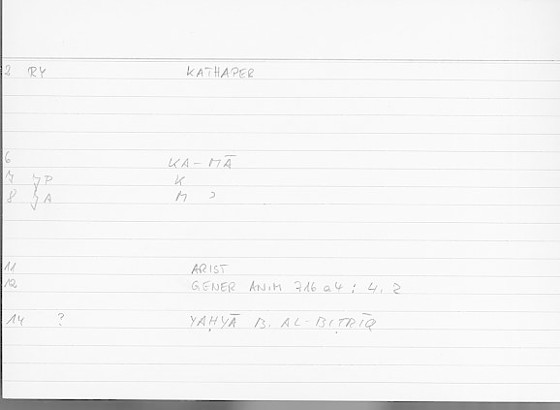 2 RY KATHAPER
6 KA-MĀ
7 P K
8 A M ɔ
11 ARIST
12 GENER ANIM 716 a 4 : 4. 2
14 ? YAḤYĀ B. AL-BIṬRĪQ